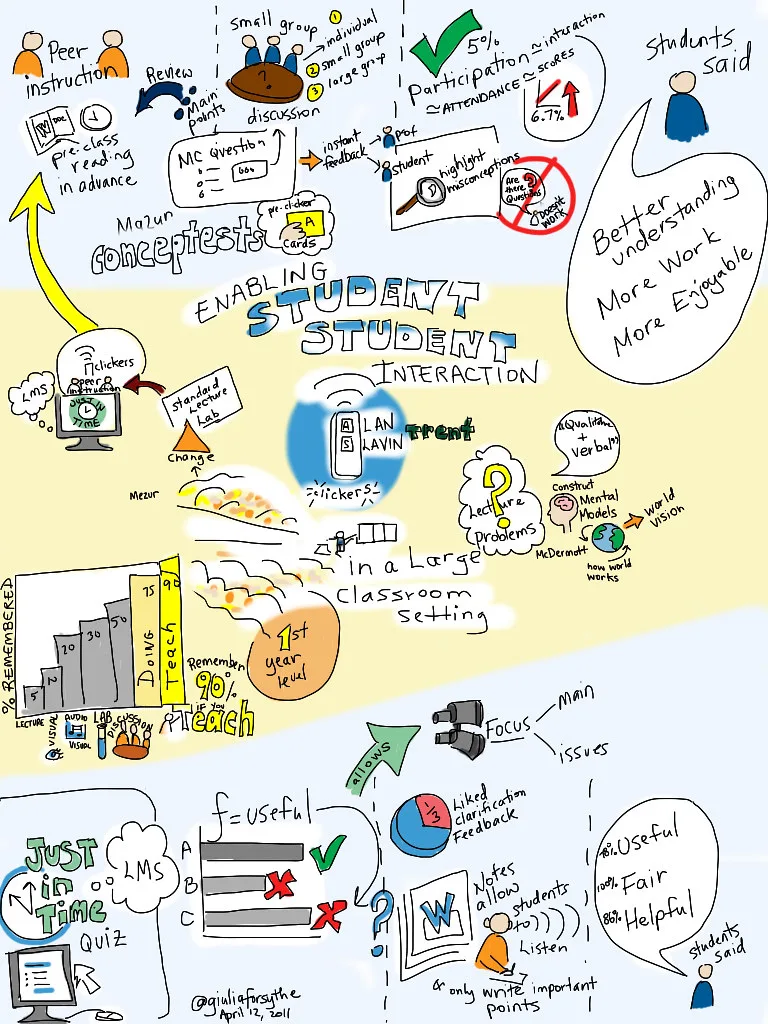 Peer
instruction
Review
Main
points
DOC
pre-class
reading
in advance
small group
1
individual
2 small group
3 large group
?
discussion
MC Question
instant
feedback
prof
student
highlight
misconceptions
Are
there
Questions
?
doesn't
work
5%
Participation ≈ interaction
≈ ATTENDANCE ≈ SCORES
6.7%
students
said
Better
understanding
More Work
More Enjoyable
Mazur
conceptests
pre-clicker
A
cards
ENABLING
STUDENT
STUDENT
INTERACTION
clickers
peer
instruction
LMS
JUST IN
TIME
Standard
Lecture
Lab
change
Mezur
A
S
LAN
LAVIN
Trent
clickers
in a Large
classroom
setting
1st
year
level
?
Lecture
Problems
Qualitative
+
verbal"
construct
Mental
Models
McDermott
how world
works
world
vision
% REMEMBERED
5
20
30
50
75
DOING
90
Teach
LECTURE
VISUAL
AUDIO
VISUAL
LAB
DISCUSSION
Remember
90%
IF YOU
Teach
allows
FOCUS
main
issues
JUST
in
TIME
QUIZ
LMS
f=useful
A
B
C
?
@giuliaforsythe
April 12, 2011
1/3
Liked
clarification
Feedback
W
Notes
allow
students
to
Listen
& only write important
points
Useful
100% Fair
86% Helpful
students
said